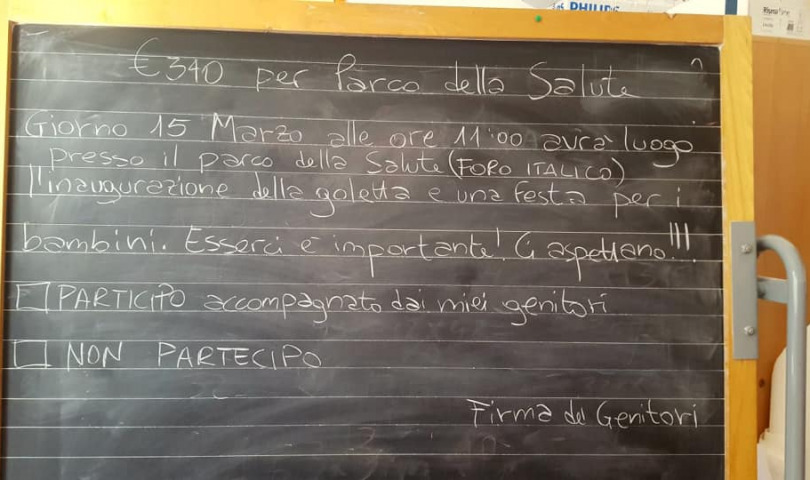 PHILIPS
€340 per Parco della Salute
Giorno 15 Marzo alle ore 11:00 avrà luogo
presso il parco della Salute (FORO ITALICO)
l'inaugurazione della goletta e una festa per i
bambini. Esserci è importante! Ci aspettano!!!!
PARTICIPO accompagnato dai miei genitori
NON PARTECIPO
Firma dei Genitori